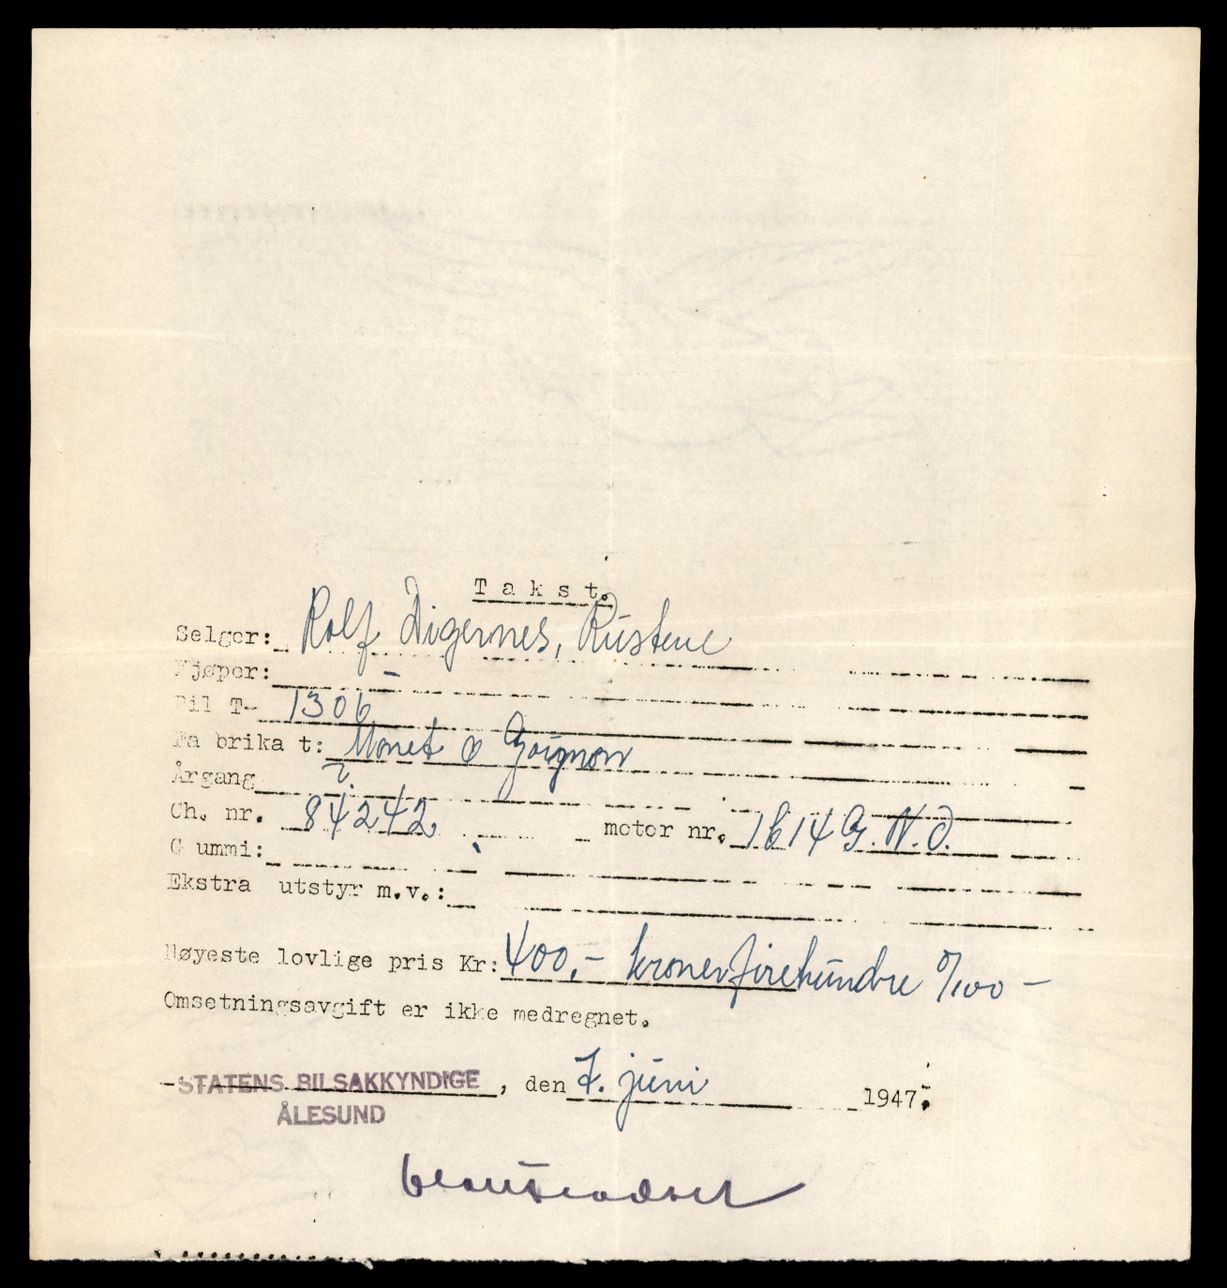 Takst.
Selger: Rolf Digernes, Rustene
Kjøper: -
Bil T- 1306
Fabrikat: Monet & Goignon
Årgang ?
Ch. nr. 84242 motor nr. 1614 G.N.O.
Gummi:
Ekstra utstyr m.v.:
Høyeste lovlige pris Kr: 400,- kroner firehundre 0/100 -
Omsetningsavgift er ikke medregnet.
STATENS BILSAKKYNDIGE, den 7. juni 1947.
ÅLESUND